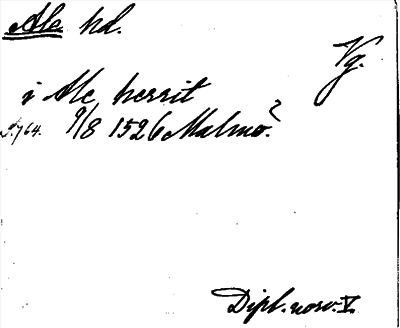 Ale hd.
Vg.
i Ale herrit
S.764. 9/8 1526 Malmö?
Dipl. norv. V.